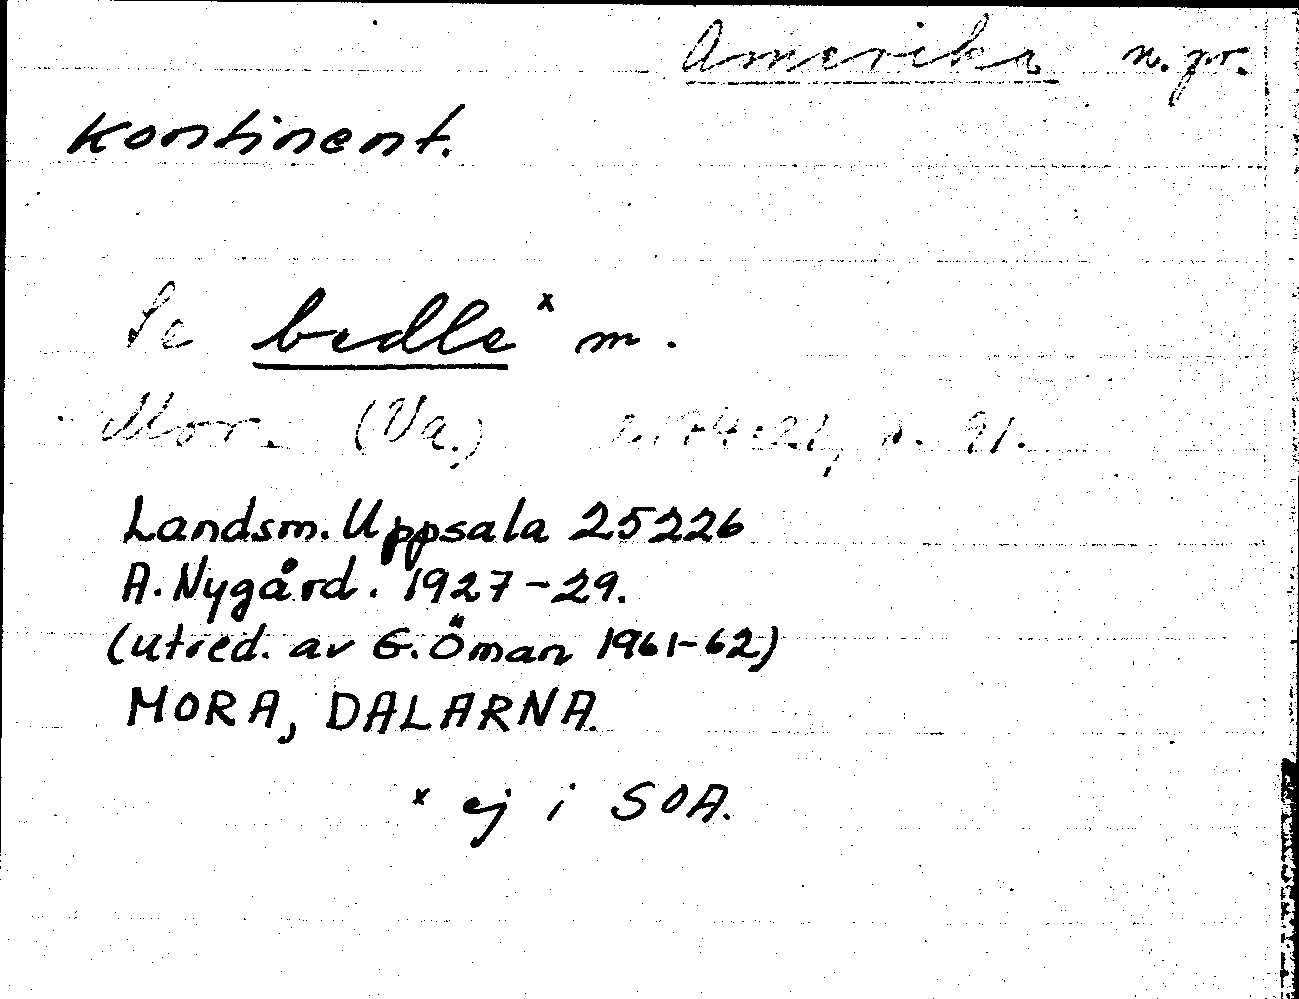 Amerika n. pr.
Kontinent.
Se bedle x m.
Mor. (Va.) s. 91.
Landsm. Uppsala 25226
A. Nygård. 1927-29.
(utred. av G. Öman 1961-62)
MORA, DALARNA.
x ej i SOA.